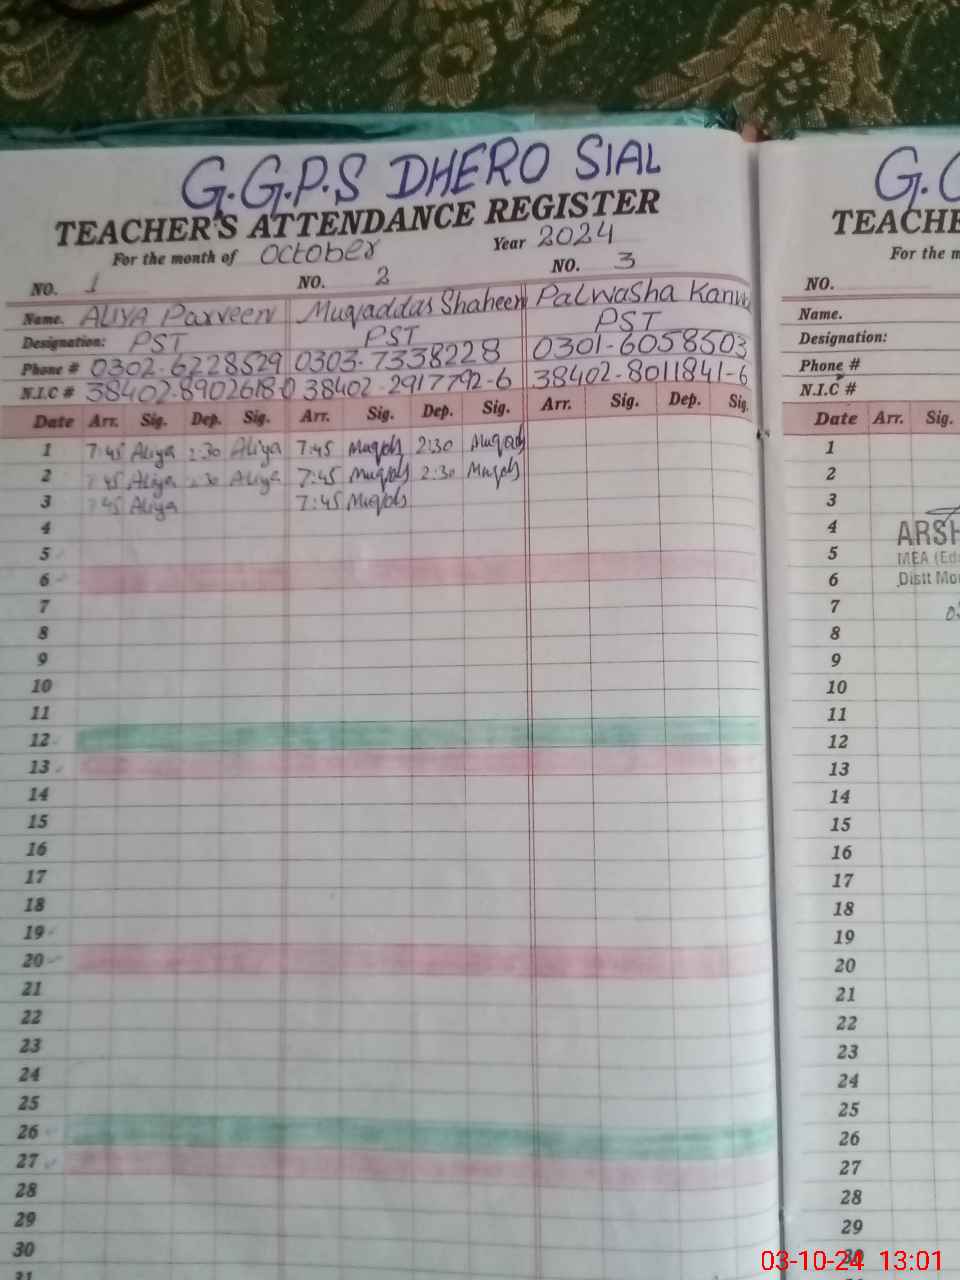 G.G.P.S DHERO SIAL
TEACHER'S ATTENDANCE REGISTER
For the month of October Year 2024
NO. 1 NO. 2 NO. 3
Name. ALIYA Parveen Muqaddas Shaheen Palwasha
Designation: PST PST PST
Phone # 0302-6228529 0303-7338228 0301-6058503
N.I.C # 38402-8902618-0 38402-2917792-6 38402-8011841-6
Date Arr. Sig. Dep. Sig. Arr. Sig. Dep. Sig. Arr. Sig. Dep. Sig.
1 7:45 Aliya 2:30 Aliya 7:45 2:30
2 7:45 Aliya 2:30 Aliya 7:45 2:30
3 7:45 Aliya 7:45
4
5
6
7
8
9
10
11
12
13
14
15
16
17
18
19
20
21
22
23
24
25
26
27
28
29
30
31
G.
TEACHE
For the m
NO.
Name.
Designation:
Phone #
N.I.C #
Date Arr. Sig.
1
2
3
4 ARSH
5 MEA (Ed
6 Distt Mo
7
8
9
10
11
12
13
14
15
16
17
18
19
20
21
22
23
24
25
26
27
28
29
30
03-10-24 13:01